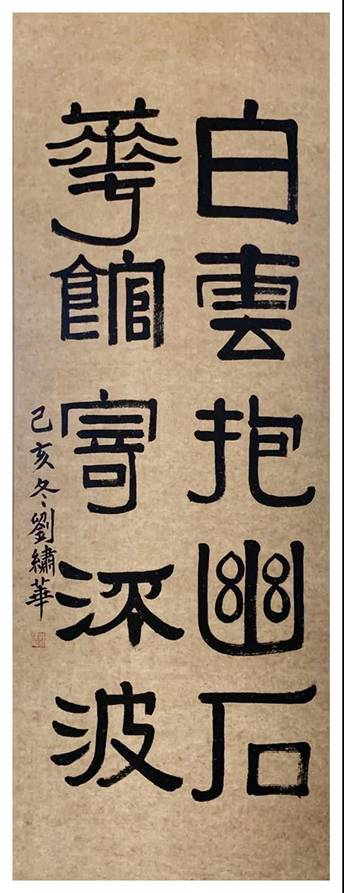 白雲抱幽石
華館寄流波
己亥冬劉繡華